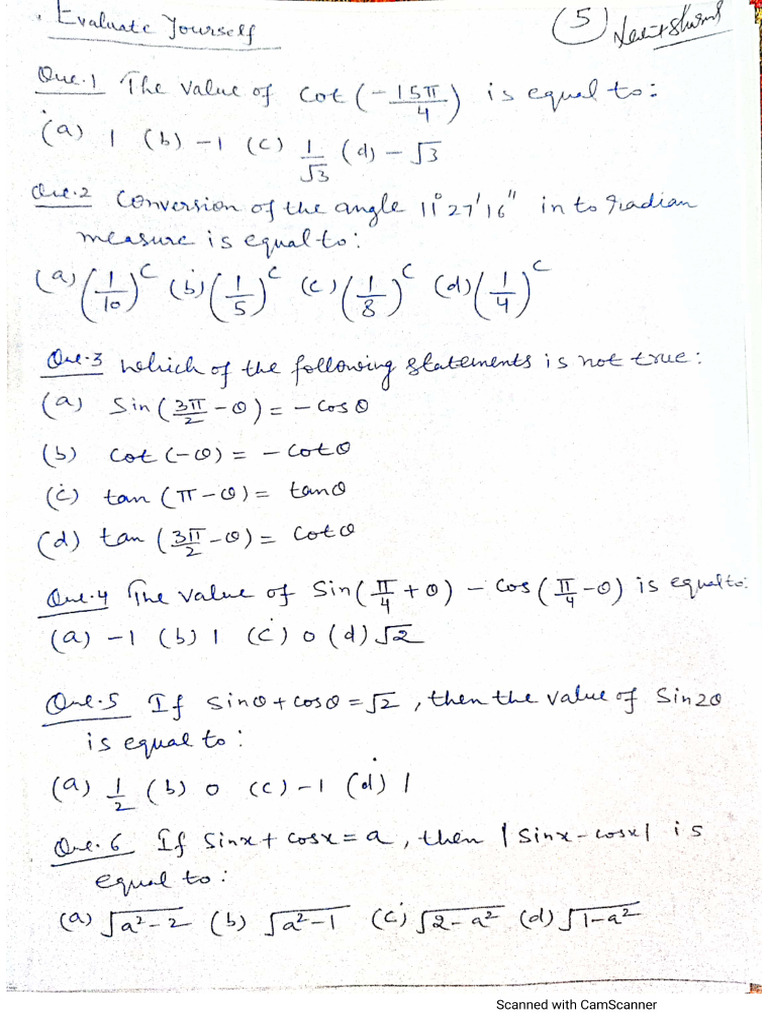 Evaluate Yourself
(5)
Que.1 The value of cot(-15π/4) is equal to:
(a) 1 (b) -1 (c) 1/√3 (d) -√3
Que.2 Conversion of the angle 11° 27' 16" in to radian
measure is equal to:
(a) (1/10)^c (b) (1/5)^c (c) (1/8)^c (d) (1/4)^c
Que.3 which of the following statements is not true:
(a) Sin(3π/2 - θ) = -cosθ
(b) cot(-θ) = -cotθ
(c) tan(π-θ) = tanθ
(d) tan(3π/2-θ) = cotθ
Que.4 The value of Sin(π/4+θ) - cos(π/4-θ) is equal to:
(a) -1 (b) 1 (c) 0 (d) √2
Que.5 If sinθ+cosθ=√2, then the value of Sin2θ
is equal to:
(a) 1/2 (b) 0 (c) -1 (d) 1
Que.6 If Sinx+cosx=a, then |Sinx-cosx| is
equal to:
(a) √(a²-2) (b) √(a²-1) (c) √(2-a²) (d) √(1-a²)
Scanned with CamScanner